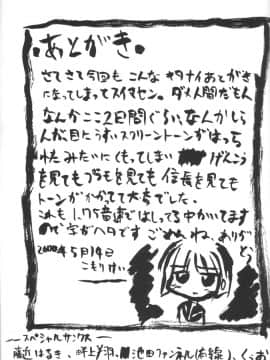 。あとがき。
さてさて今回もこんなキタナイあとがき
になってしまってスイマセン。ダメ人間だもん
なんかここ2日間ぐらい、なんかしら
んが目にうすいスクリーントーンがはっら
れたみたいにくもってしまい げんこう
を見てもつらも見ても信長を見ても
トーンがかかってて大変でした。
これも1.75倍速ではしってる中かいてます
ので字がヘロです ごめんね、ありがと
2000年5月14日
こもりけい
〜スペシャルサンクス〜
藤近はるき、 池田ファンネル(赤緑)、くっお